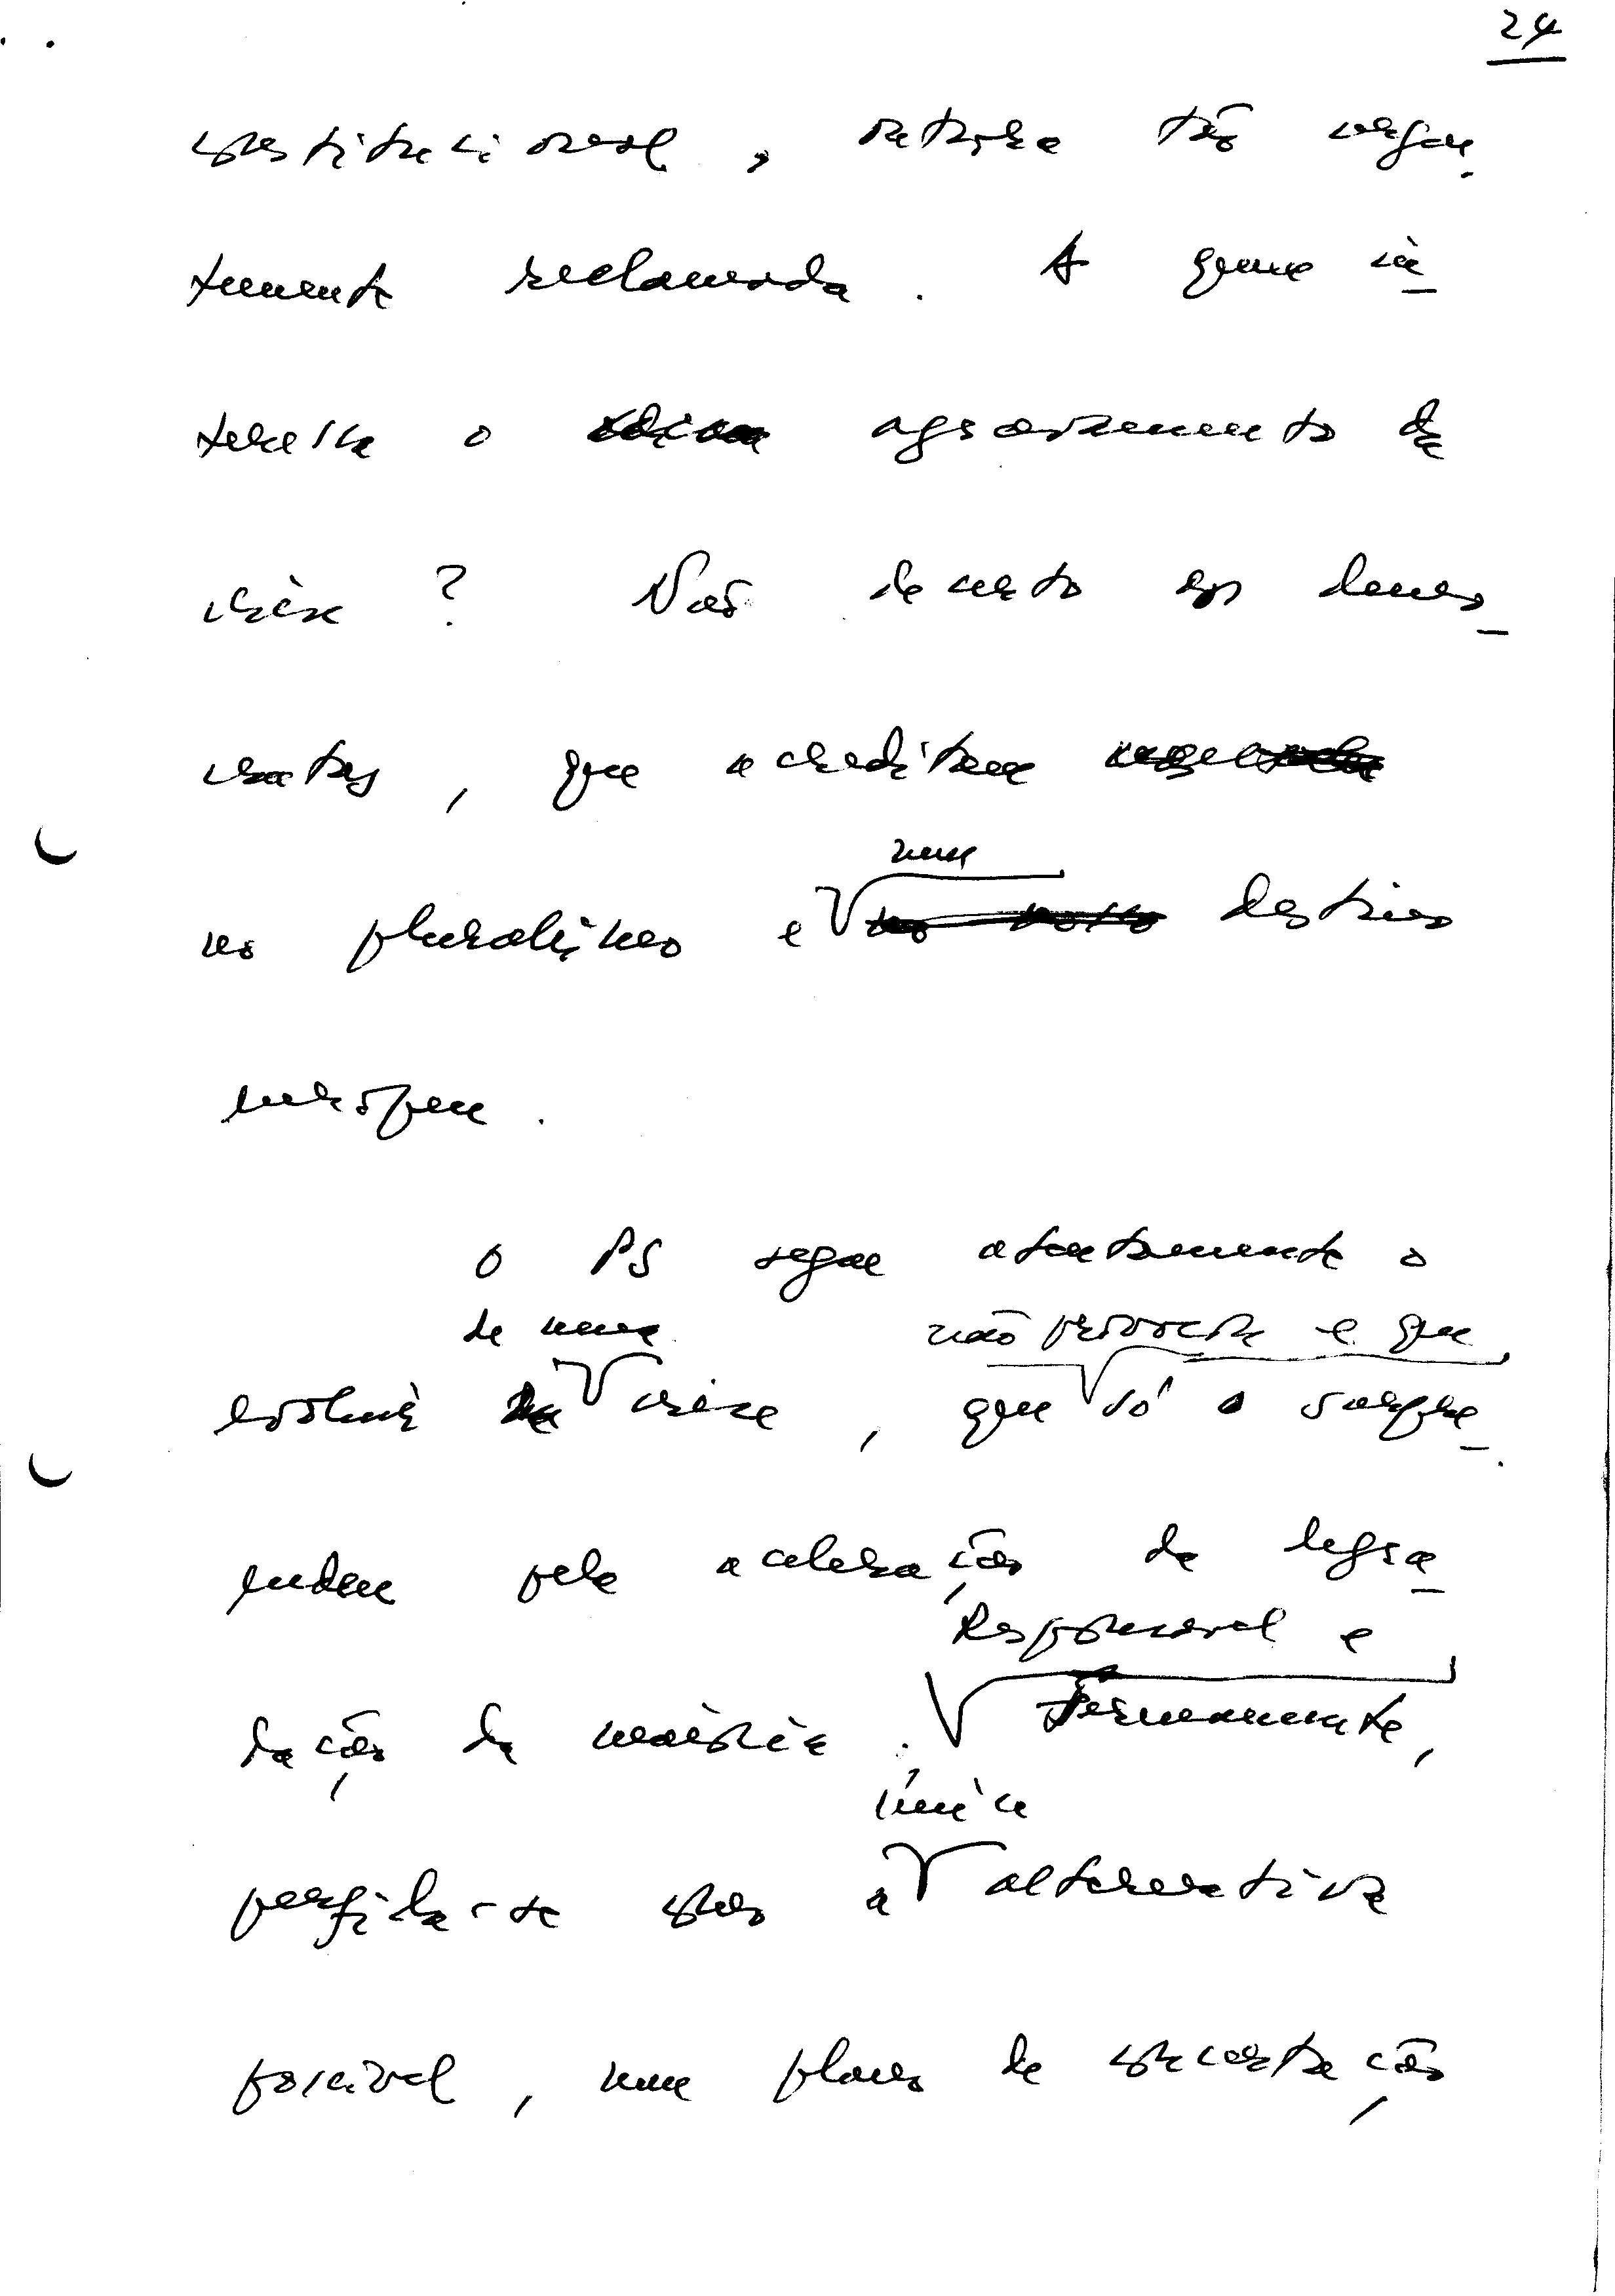 24
constitucional, outrora tão urgen-
temente reclamada. A quem in-
teressa o agravamento da
crise? Não decerto aos demo-
cratas, que acreditam
no pluralismo e num destino
europeu.
O PS segue atentamente o
de uma não provocou e que
evoluir crise, que só o surpre-
endeu pela aceleração da degra-
dação da maioria.
Responsável e
permanente,
única
perfila-se como a alternativa
possível, num plano de concertação